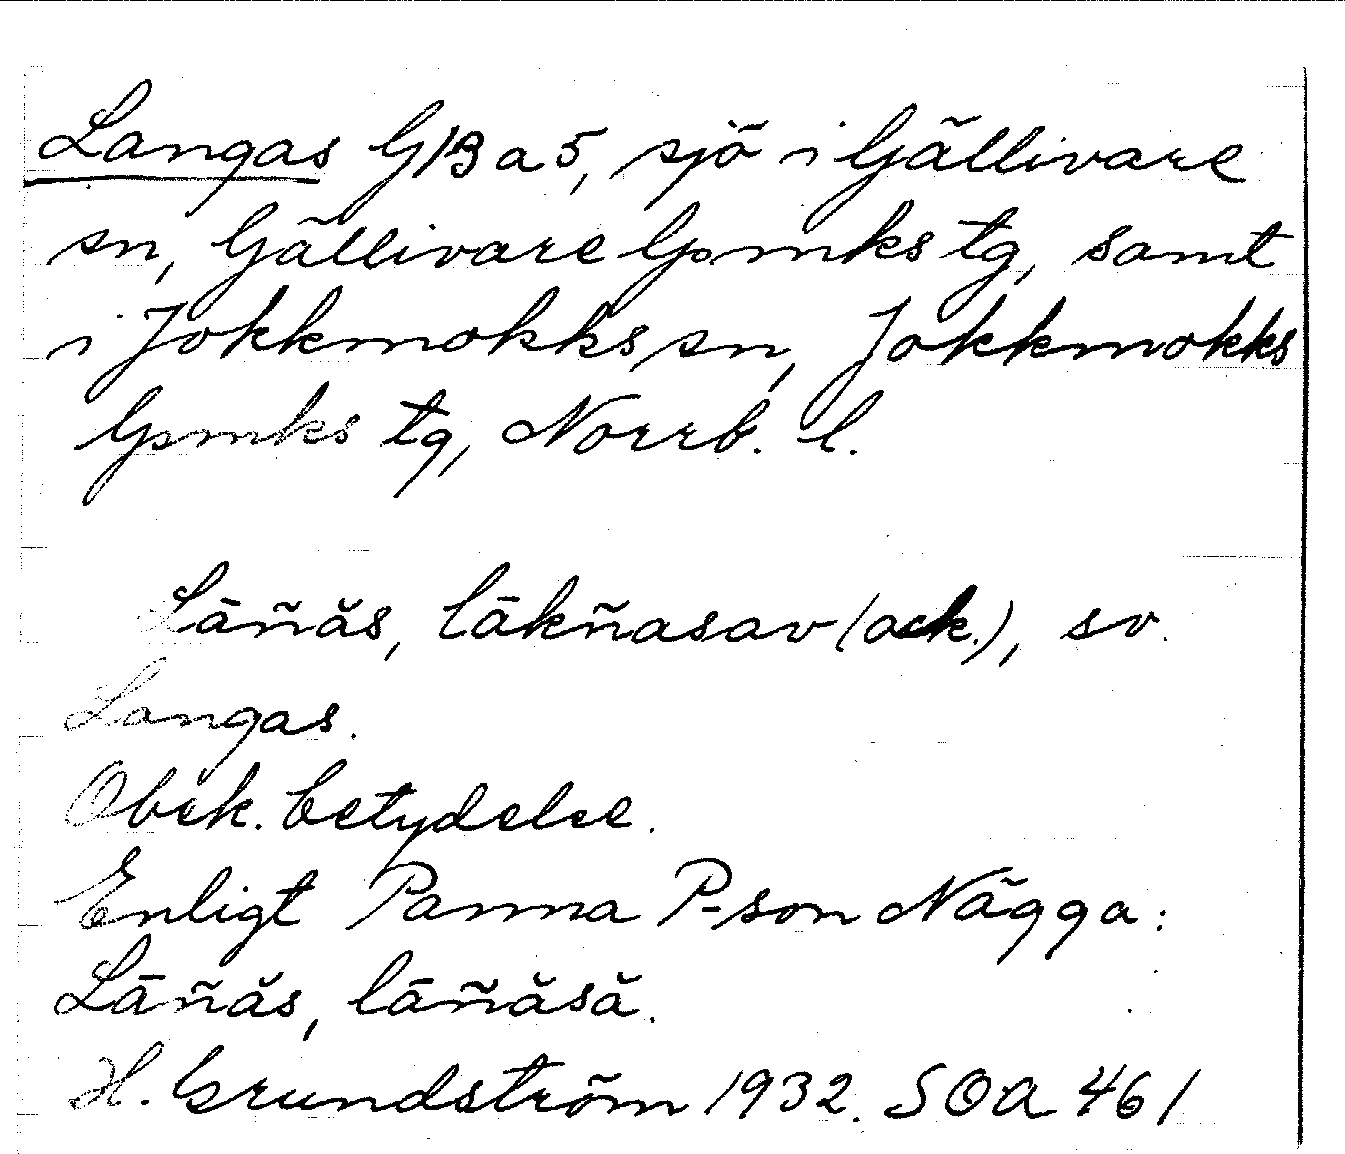 Langas G13a5, sjö i Gällivare
sn, Gällivare lpmks tg, samt
i Jokkmokks sn, Jokkmokks
lpmks tg, Norrb. l.
Lāñăs, lākñasav (ack.), sv.
Langas.
Obek. betydelse.
Enligt Panna P-son Någga:
Lāñăs, lāñăsă.
H. Grundström 1932. SOA 461